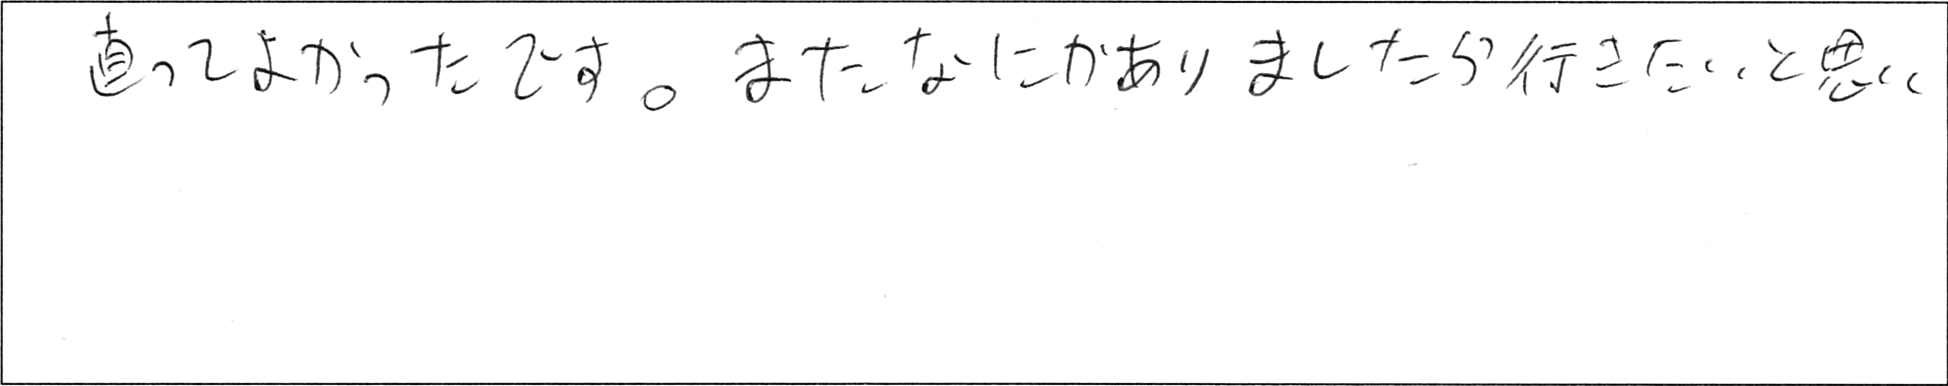 直ってよかったです。またなにかありましたら行きたいと思い